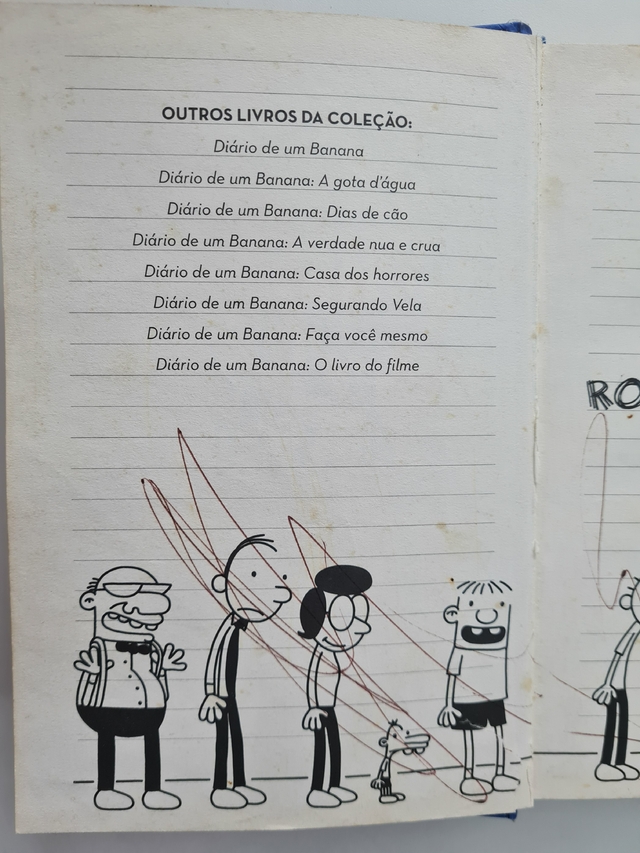 OUTROS LIVROS DA COLEÇÃO:
Diário de um Banana
Diário de um Banana: A gota d'água
Diário de um Banana: Dias de cão
Diário de um Banana: A verdade nua e crua
Diário de um Banana: Casa dos horrores
Diário de um Banana: Segurando Vela
Diário de um Banana: Faça você mesmo
Diário de um Banana: O livro do filme
RO